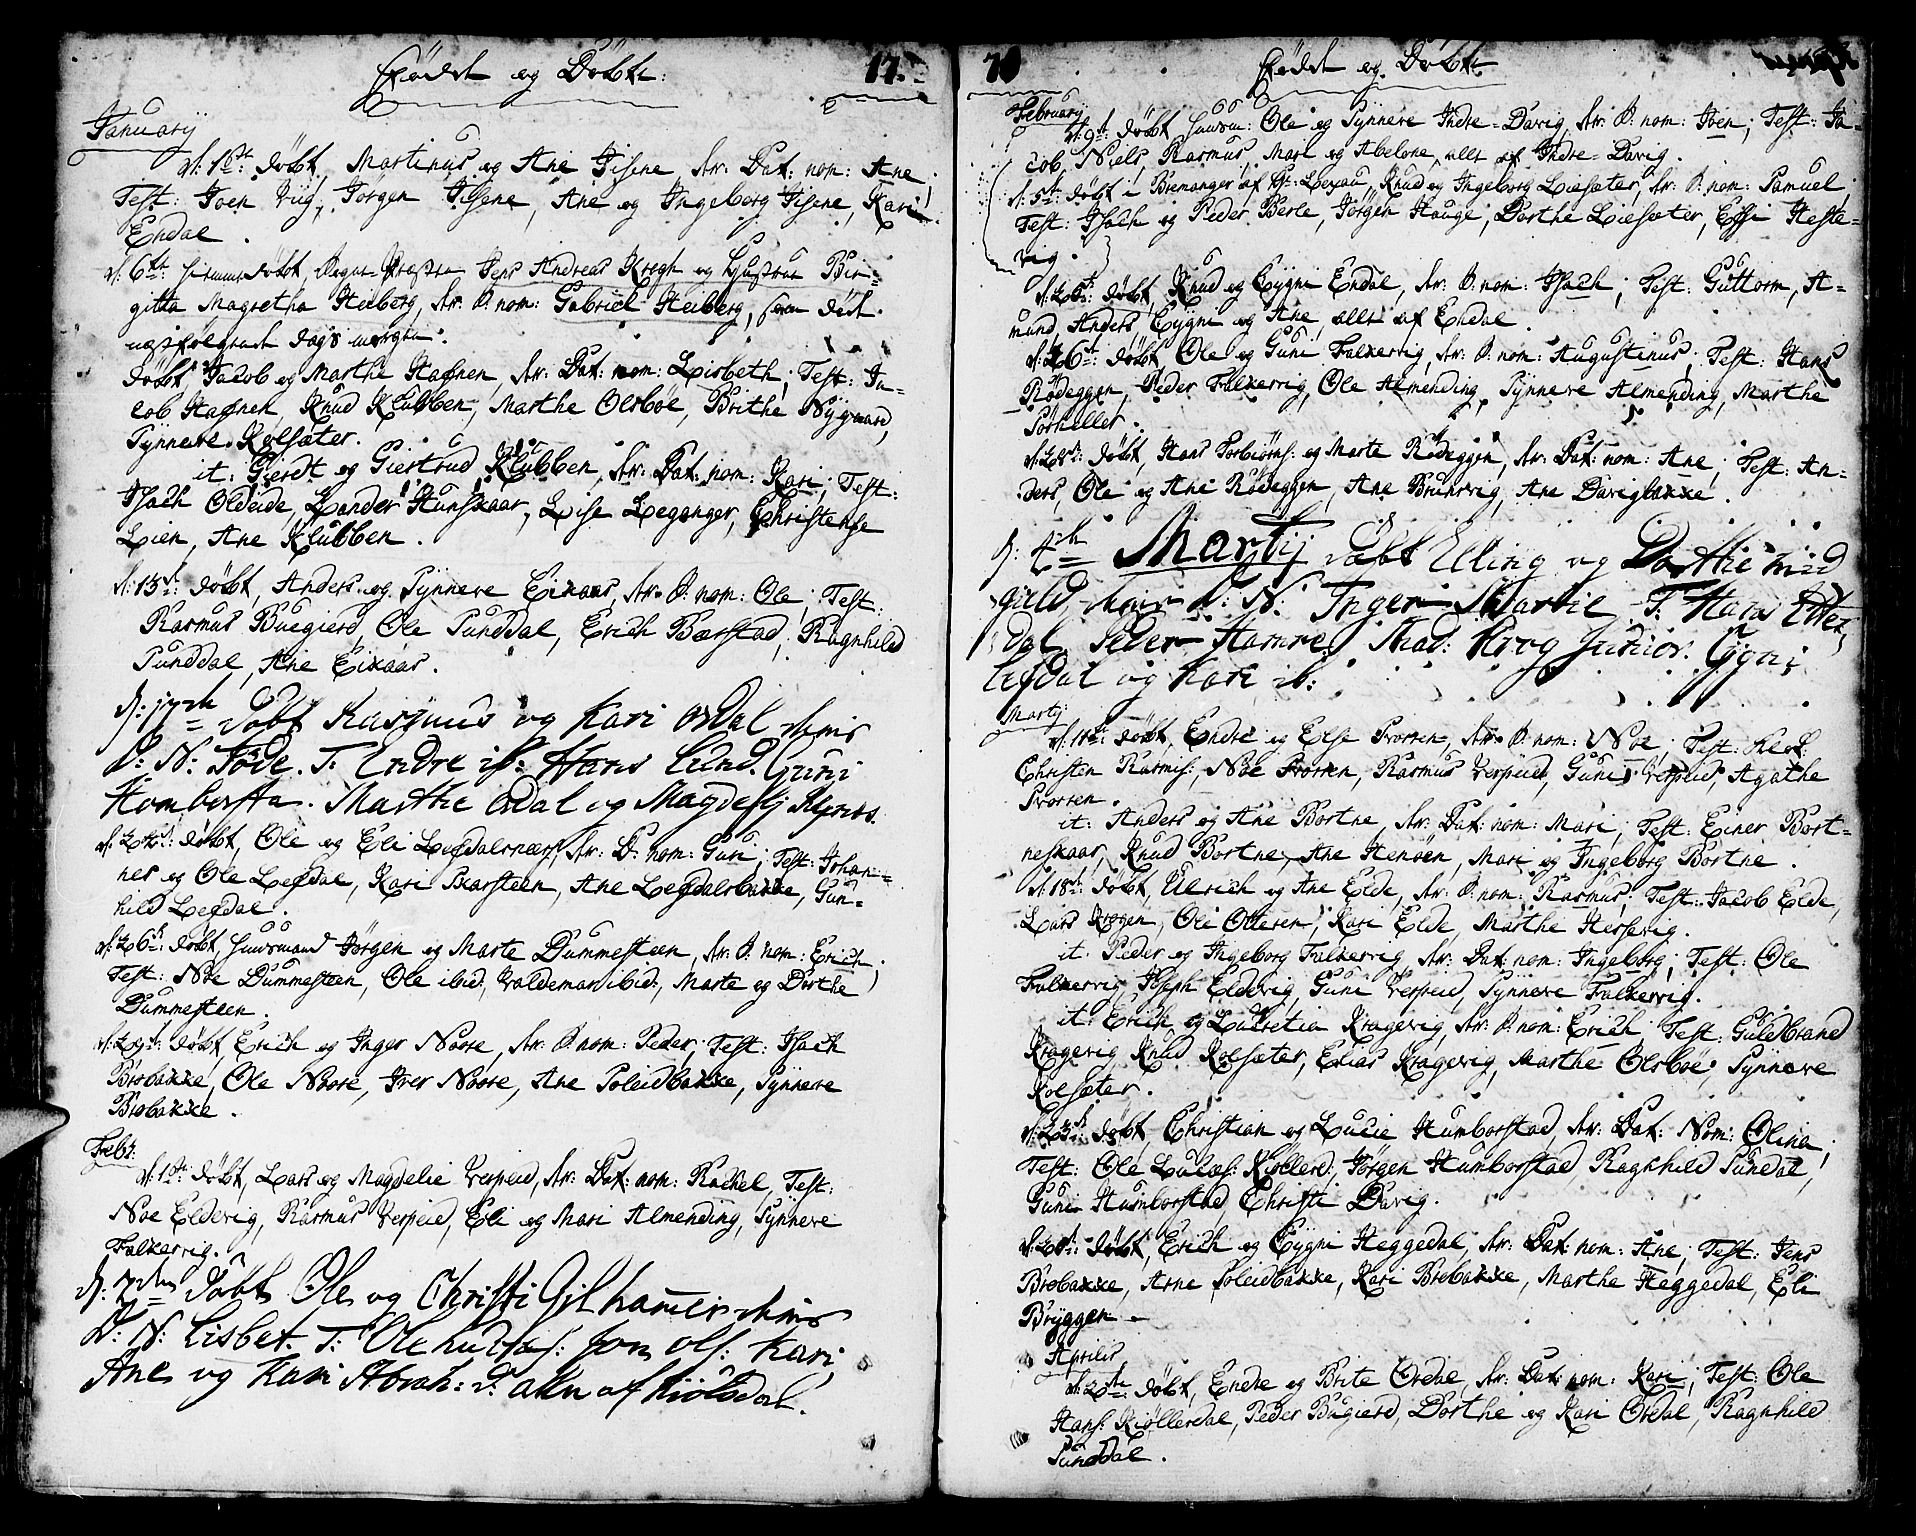 Fødde og Døbte: 17
Januarij
d: 1ste døbt, Martinus og Ane Jisene, der: Dat: nom: Ane;
Test: Joen Vüg, Jorgen Jisene, Ane og Ingeborg Jisene, Kari
Endal.
d: 6te: døbt, Jens Andreas Krogh og Hustrue Bir-
gitta Magretha Heiberg, der: D: nom: Gabriel Heiberg, som døde
næstfølgende dags morgen.
døbt, Jacob og Marthe Hafnen, der: Dat: nom: Lisbeth; Test: Ja-
cob Hafnen, Knud Klubben, Marthe Olsböe, Brithe Nÿgaard,
Sÿnneve Kolsæter.
it: Gierdt og Giertrud Klubben, der: Dat: nom: Kari; Test:
Isach Oldeide, Lander Hunskaar, Lise Leganger, Christense
Lien, Ane Klubben.
d: 13de: døbt, Anders og Sÿnneve Eikaas, der: D: nom: Ole; Test:
Rasmus Buegierd, Ole Sunddal, Erich Bærstad, Ragnhild
Sunddal, Ane Eikaas.
d: 17de døbt Rasmus og Kari Ordal deris
D: N: Töde. T: Endre ib: Hans Lund. Guri
Homborsta. Marthe Ordal og Magdeli
d: 22de: døbt, Ole og Eli Lefdalsnæs, der: D: nom: Guri; Test: Johan-
nes og Ole Lefdal, Kari Skarsteen, Ane Lefdalsbakke, Gun-
hild Lefdal.
d: 26de: døbt, Huusmand Jørgen og Marte Dummesteen, der: D: nom: Erich;
Test: Noe Dummesteen, Ole ibid:, Valdeman ibid:, Marte og Dorthe
Dummesteen.
d: 29de: døbt, Erich og Inger Noore, der: D: nom: Peder; Test: Isach
Brobakke, Ole Noore, Iver Noore, Ane Soleidbakke, Sÿnneve
Brobakke.
Febr:
d: 1ste: døbt, Lars og Magdelie Verpeid, der: Dat: nom: Rachel, Test:
Noe Eldevig, Rasmus Verpeid, Eli og Mari Almending, Sÿnneve
Falkevig.
d: 7den døbt Ole og Christi Gilhamer deris
D: N: Lisbet. T: Ole Jon ols: Kari,
Ane og Kari Abrah: d: allen af Kiölsdal.
70 Fødde og Døbte
Februarij
d: 9de døbt Huusm: Ole og Sÿnneve Indre-Davig, der: D: nom: Joen; Test: Ja-
cob, Niels, Rasmus, Mari og Abelone, alle af Indre-Davig.
d: 5te: døbt i Bremanger af Hr: Lexau, Knud og Ingeborg Liesæter, der: D: nom: Samuel;
Test: Isach og Peder Berle, Jørgen Hauge, Dorthe Liesæter, Effi Heste-
vig.
d: 26de: døbt, Knud og Eÿgni Endal, der: D: nom: Isach; Test: Guttorm, A-
mund, Anders, Eÿgni og Ane, alle af Endal.
d: 26de: døbt Ole og Guri Falkevig, der: D: nom: Augustinus; Test: Hans
Rödeggen, Peder Falkevig, Ole Almending, Sÿnneve Almending, Marthe
Sörheller.
d: 28de: døbt, Hans Torbiörns: og Marte Rödeggen, der: Dat: nom: Ane; Test: An-
ders, Ole og Ane Rödeggen, Ane Bruhrvig, Ane Davigbakke.
d: 4de Martij døbt Elling og Dorthe Mid
gield, deris D: N: Inger Marie T: Hans
dal, Peder Hamre, Mad: Krog Junior. Eÿgni
Lefdal og Kari ib:
Martij
d: 11te: døbt, Endre og Else Frösen, der: D: nom: Noe; Test:
Christen Rasmis:, Noe Frösen, Rasmus Verpeid, Guri Verpeid, Agathe
Frösen.
it: Anders og Ane Bortne, der: Dat: nom: Mari; Test: Einer Bort-
neskaar, Knud Bortne, Ane Henöen, Mari og Ingeborg Bortne.
d: 18de: døbt, Ulrich og Ane Elde, der: D: nom: Rasmus; Test: Jacob Elde,
Lars Krogen, Ole Ottesen, Kari Elde, Marthe Hessevig.
it: Peder og Ingeborg Falkevig, der: Dat: nom: Ingeborg; Test: Ole
Falkevig, Joseph Eldevig, Guri Verpeid, Sÿnneve Falkevig.
it: Erich og Lucretia Kragevig, der: D: nom: Erich; Test: Guldbrand
Kragevig, Knud Kolsæter, Elias Kragevig, Marthe Olsböe, Sÿnneve
Kolsæter.
d: 23de: døbt, Christian og Lucie Humborstad, der: Dat: Nom: Olina;
Test: Ole Lucas: Kiöllerd, Jörgen Humborstad, Ragnhild Sundal,
Guri Humborstad, Christi Davig.
døbt, Erich og Eÿgni Heggedal, der: Dat: nom: Ane; Test: Jens
Brobakke, Arne Soleidbakke, Kari Brobakke, Marthe Heggedal, Eli
Brÿggen.
Aprilis
d: 2den: døbt, Endre og Brite Ordal, der: Dat: nom: Kari; Test: Ole
Hans: Kiöllerdal, Peder Bugierd, Dorthe og Kari Ordal, Ragnhild
Sunddal.